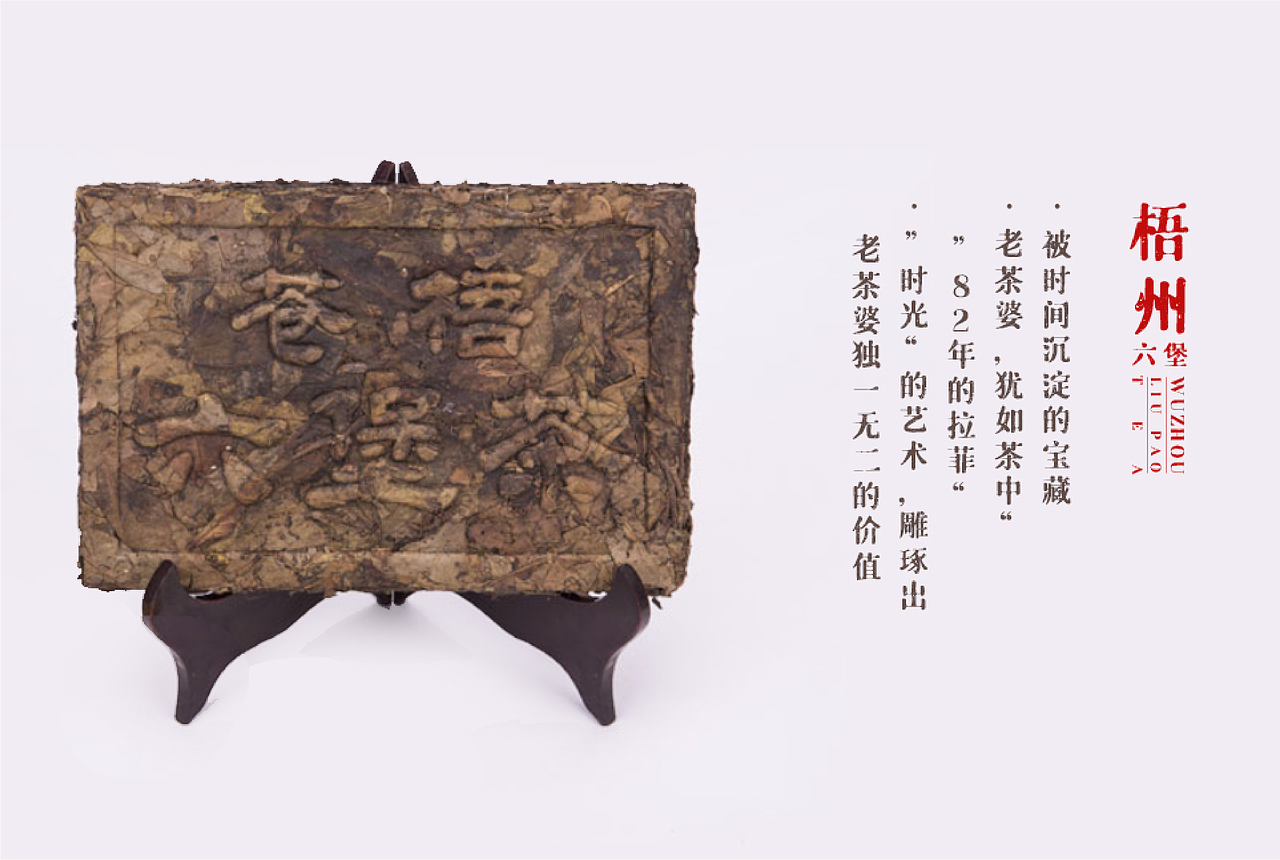 苍梧
六堡茶
梧州
六堡
WUZHOU
LIU PAO
TEA
·被时间沉淀的宝藏
·老茶婆,犹如茶中“
”82年的拉菲“
·”时光“的艺术,雕琢出
老茶婆独一无二的价值